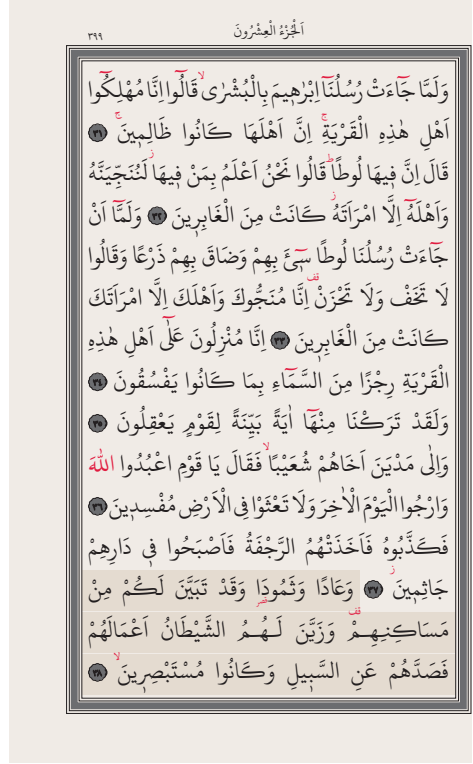 اَلْجُزْءُ الْعِشْرُونَ
٣٩٩
وَلَمَّا جَٓاءَتْ رُسُلُنَٓا اِبْرٰه۪يمَ بِالْبُشْرٰىۙ قَالُٓوا اِنَّا مُهْلِكُٓوا
اَهْلِ هٰذِهِ الْقَرْيَةِۚ اِنَّ اَهْلَهَا كَانُوا ظَالِم۪ينَۚ ﴿٣١﴾
قَالَ اِنَّ ف۪يهَا لُوطًاۜ قَالُوا نَحْنُ اَعْلَمُ بِمَنْ ف۪يهَاۘ لَنُنَجِّيَنَّهُ
وَاَهْلَهُٓ اِلَّا امْرَاَتَهُۘ كَانَتْ مِنَ الْغَابِر۪ينَ ﴿٣٢﴾ وَلَمَّٓا اَنْ
جَٓاءَتْ رُسُلُنَا لُوطًا س۪ٓيءَ بِهِمْ وَضَاقَ بِهِمْ ذَرْعًا وَقَالُوا
لَا تَخَفْ وَلَا تَحْزَنْ۠ اِنَّا مُنَجُّوكَ وَاَهْلَكَ اِلَّا امْرَاَتَكَ
كَانَتْ مِنَ الْغَابِر۪ينَ ﴿٣٣﴾ اِنَّا مُنْزِلُونَ عَلٰٓى اَهْلِ هٰذِهِ
الْقَرْيَةِ رِجْزًا مِنَ السَّمَٓاءِ بِمَا كَانُوا يَفْسُقُونَ ﴿٣٤﴾
وَلَقَدْ تَرَكْنَا مِنْهَٓا اٰيَةً بَيِّنَةً لِقَوْمٍ يَعْقِلُونَ ﴿٣٥﴾
وَاِلٰى مَدْيَنَ اَخَاهُمْ شُعَيْبًاۙ فَقَالَ يَا قَوْمِ اعْبُدُوا اللّٰهَ
وَارْجُوا الْيَوْمَ الْاٰخِرَ وَلَا تَعْثَوْا فِي الْاَرْضِ مُفْسِد۪ينَ ﴿٣٦﴾
فَكَذَّبُوهُ فَاَخَذَتْهُمُ الرَّجْفَةُ فَاَصْبَحُوا ف۪ي دَارِهِمْ
جَاثِم۪ينَۘ ﴿٣٧﴾ وَعَادًا وَثَمُودَا۬ وَقَدْ تَبَيَّنَ لَكُمْ مِنْ
مَسَاكِنِهِمْ۠ وَزَيَّنَ لَهُمُ الشَّيْطَانُ اَعْمَالَهُمْ
فَصَدَّهُمْ عَنِ السَّب۪يلِ وَكَانُوا مُسْتَبْصِر۪ينَۙ ﴿٣٨﴾